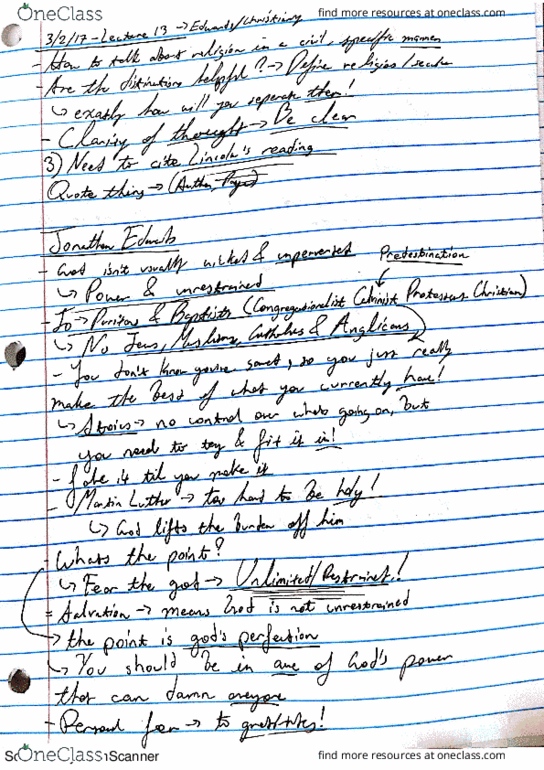 OneClass find more resources at oneclass.com
3/2/17 - Lecture 13 → Edwards/Christianity
- How to talk about religion in a civil, specific manner
- Are the distinctions helpful? → Define religion/secular
↳ exactly how will you seperate them!
- Clarity of thought → Be clear
3) Need to cite Lincoln's reading
Quote thing → (Author, Page)
Jonathan Edwards
- God isn't usually wicked &
Predestination
↳ Power & unrestrained
- To → Puritans & Baptists (Congregationalist Calvinist Protestant Christian)
↳ No Jews, Muslims, Catholics & Anglicans
- You don't know you're saved, so you just really
make the best of what you currently have!
↳ Stoics → no control over whats going on, but
you need to try & fit it in!
- fake it til you make it
- Martin Luther → too hard to be holy!
↳ God lifts the burden off him
- Whats the point?
↳ Fear the god → Unlimited/Restraint!
- Salvation → means God is not unrestrained
→ the point is god's perfection
↳ You should be in awe of God's power
that can damn anyone
- Personal fear → to
OneClass Scanner find more resources at oneclass.com